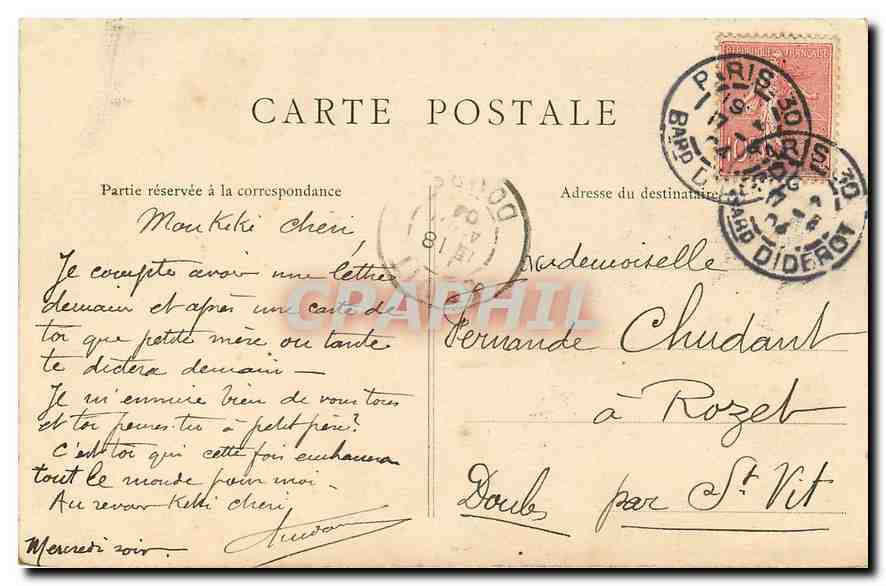 RÉPUBLIQUE FRANÇAISE
10
PARIS-30
19
17
04
BARD DIDEROT
PARIS-30
17
BARD DIDEROT
CARTE POSTALE
Partie réservée à la correspondance
Adresse du destinataire
DOUBS
18
04
Mon Kiki chéri,
Je compte avoir une lettre
demain et après une carte de
toi que petite mère ou tante
te dictera demain —
Je m'ennuie bien de vous tous
et toi penses-tu à petit père?
C'est toi qui cette fois embrassera
tout le monde pour moi.
Au revoir Kiki chéri
Mercredi soir.
Mademoiselle
Fernande Chudant
à Rozet
Doubs par St Vit
CARTAPHIL